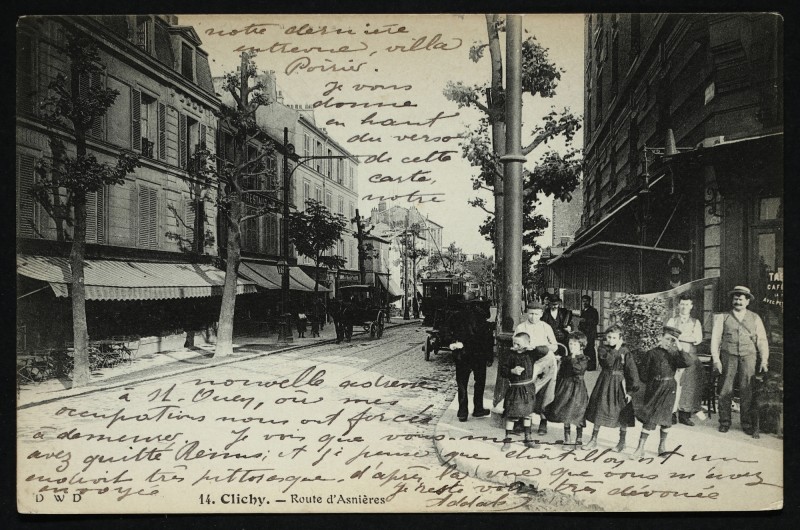 notre dernière
entrevue, villa
Poirier.
Je vous
donne
en haut
du verso
de cette
carte,
notre
nouvelle adresse
à St. Ouen, où mes
occupations nous ont forcés
à demeurer. Je vois que vous
avez quitté Reims; et je pense que châtillon est un
endroit très pittoresque, d'après la vue que vous m'avez
envoyée
Je reste votre très dévouée
TA
CAFÉ
D W D
14. Clichy. – Route d'Asnières